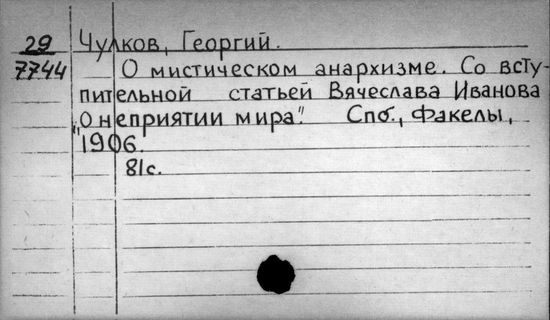 29 Чулков, Георгий.
7744 О мистическом анархизме. Со всту-
пительной статьей Вячеслава Иванова
„О неприятии мира". Спб., Факелы,
1906.
81с.